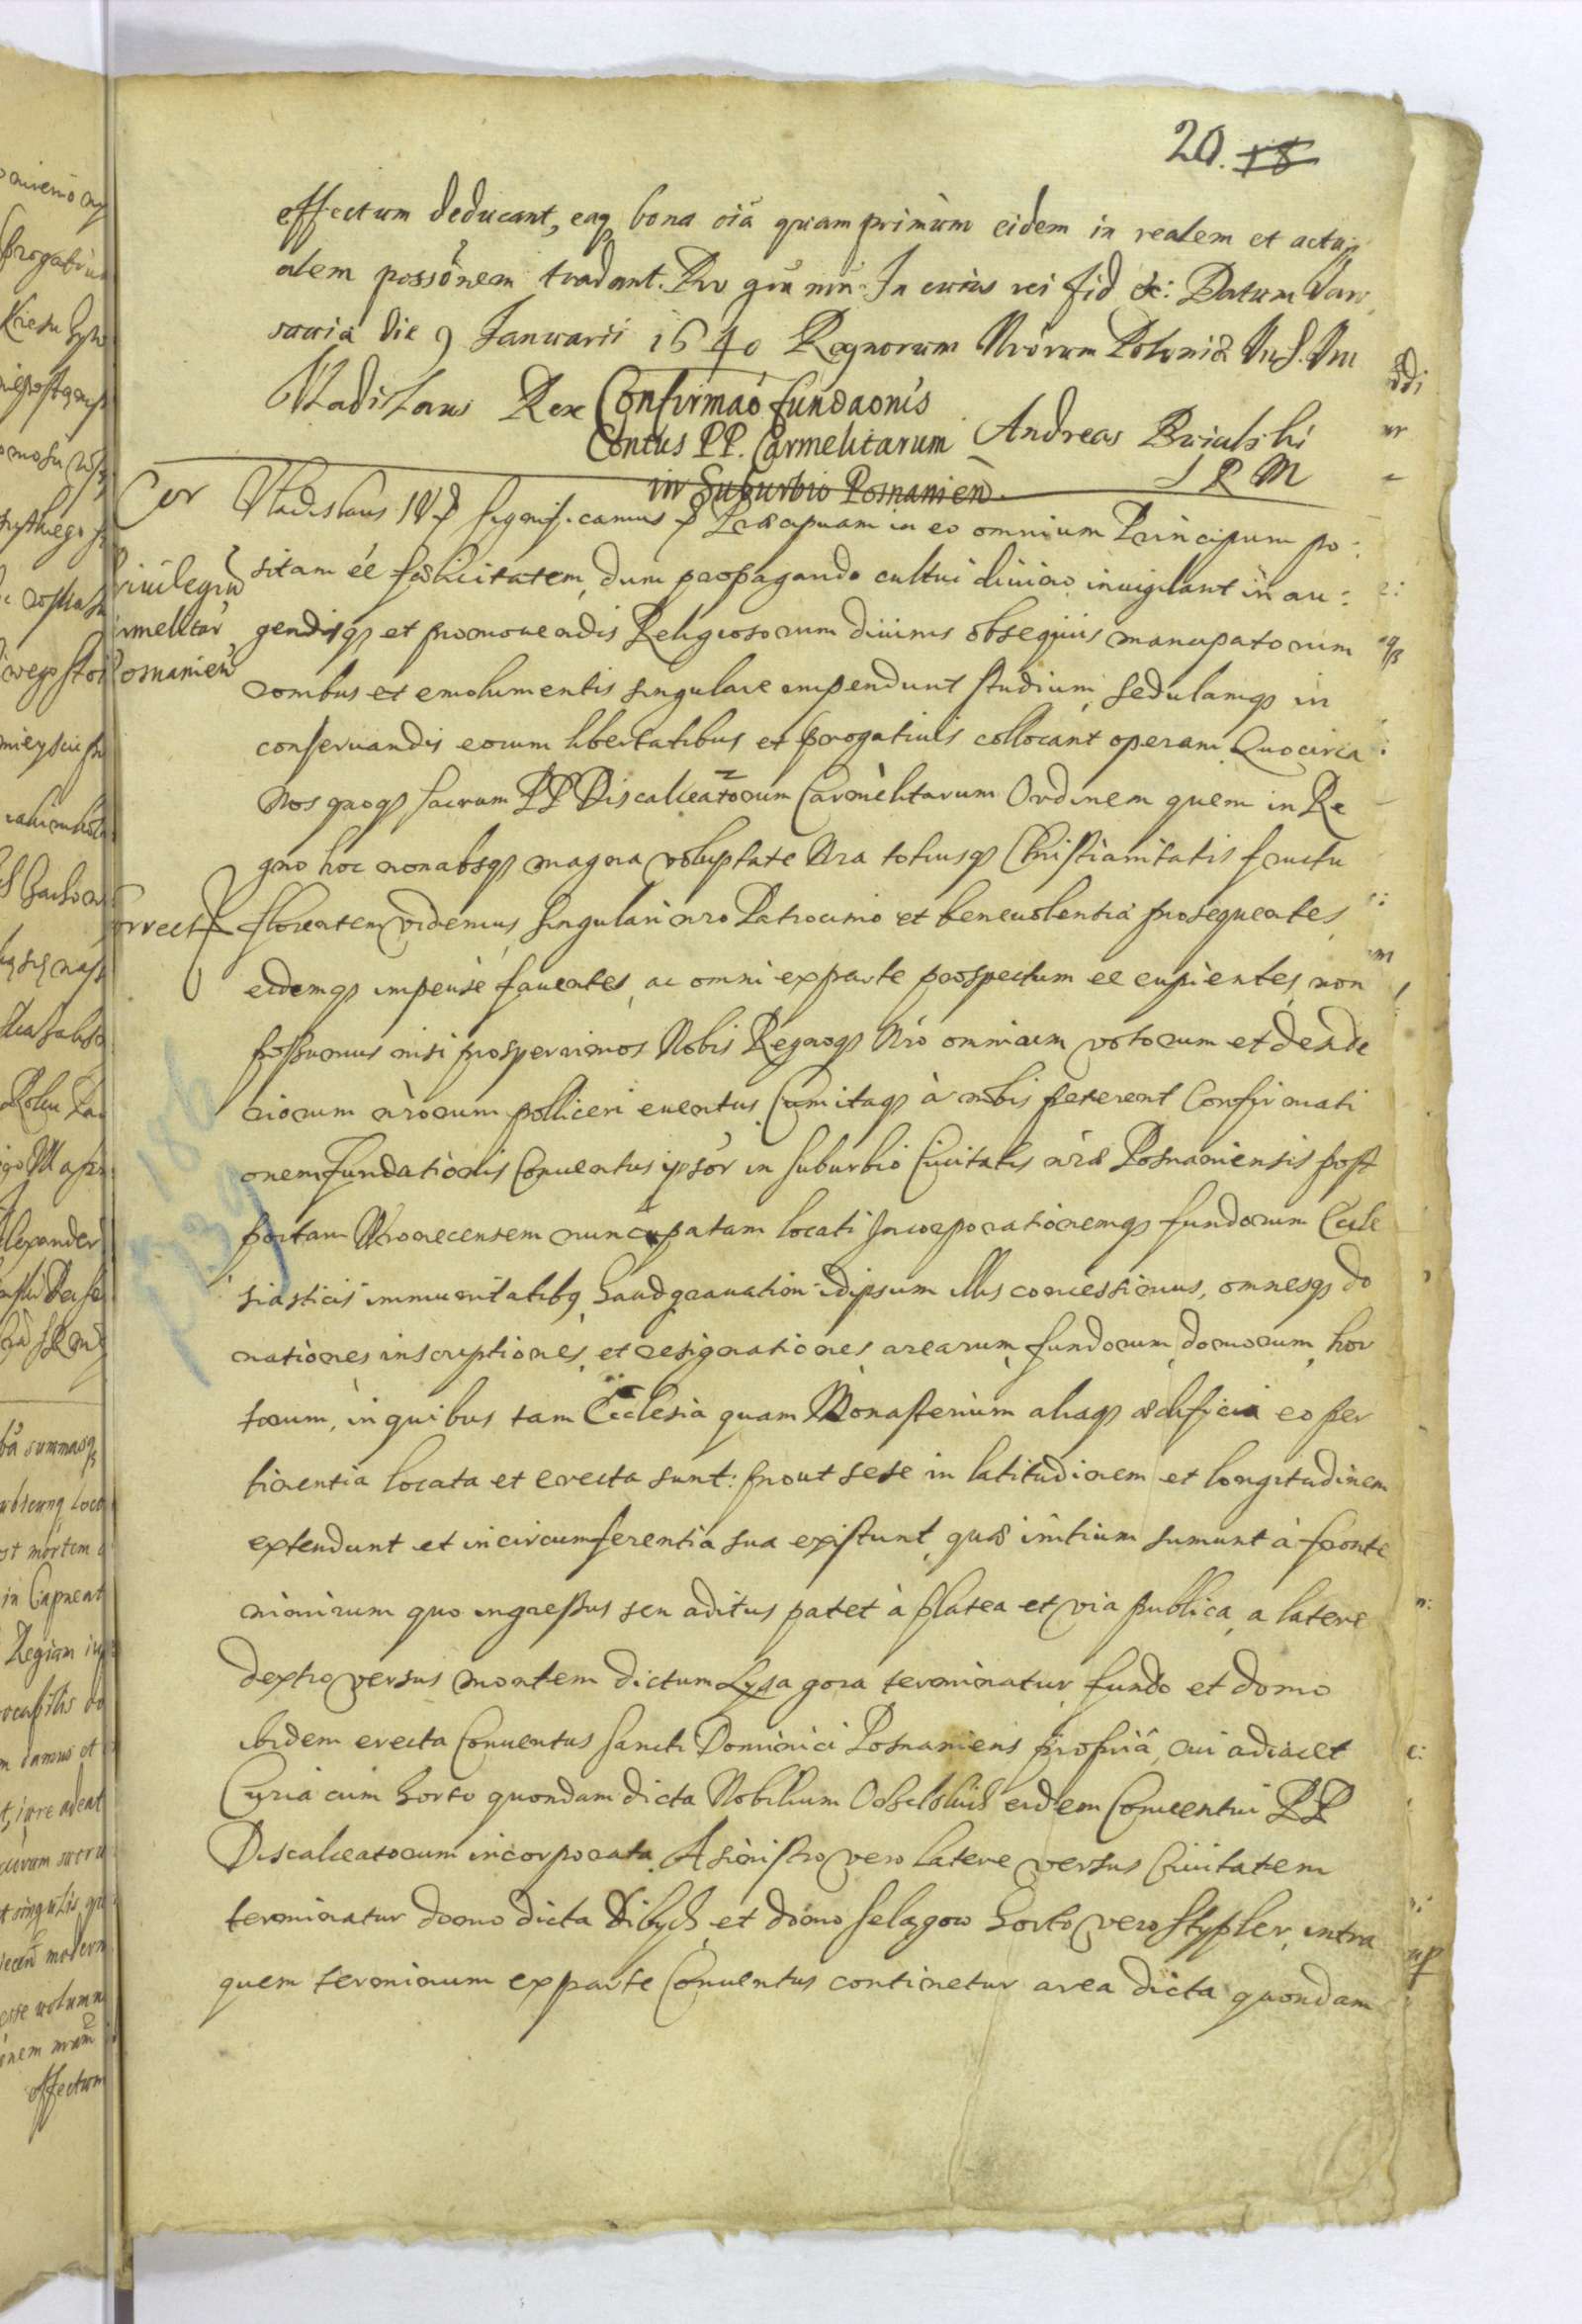 20. 18
effectum deducant, eaq bona oiã quamprimùm eidem in realem et actu
alem possõnem tradant. Pro grã nrã. In cuius rei fid &c: Datum Var
saviæ die 9 Januarii 1640 Regnorum Nrõrum Poloniæ
Vladislaus Rex
Confirmaõ fundaonis
Contus PP. Carmelitarum
in Suburbio Posnanien.
Andreas
S R M
Cor
Vladislaus IV Significamus Præcipuam in eo omnium Principum po:
sitam eẽ fælicitatem, dum propagando cultui divino invigilant in au:
gendisq et promovendis Religiosorum divinis obsequiis mancipatorum
rombus et emolumentis singulare impendunt studium, sedulamq in
conservandis eorum libertatibus et prrogativis collocant operam. Quocirca
Nos quoq sacrum PP Discalceatorum Carmelitarum Ordinem quem in Re
gno hoc non absq magna voluptate Nra totiusq Christianitatis fructu
florentem videmus, singulari nro Patrocinio et benevolentia prosequentes,
eidemq impensè faventes, ac omni ex parte prospectum eẽ cupientes, non
possumus nisi prosperrimos Nobis Regnoq Nro omnium votorum et deside
riorum nrorum polliceri eventus. Cum itaq à nobis peterent Confirmati
onem fundationis Conventus ipsõr in suburbio Civitatis nræ Posnaniensis post
portam Wronecensem nuncupatam locati Incorporationemq fundorum Eccle
siasticis immunitatibq haud gravatim idipsum illis concessimus, omnesq do
nationes inscriptiones, et resignationes arearum, fundorum, domorum, hor
torum, in quibus tam Ecclesia quam Monasterium aliaq ædificia eo per
tinentia locata et erecta sunt: prout sese in latitudinem et longitudinem
extendunt et in circumferentia sua existunt, quæ initium sumunt à fronte
nimirum quo ingressus seu aditus patet à platea et via publica, a latere
dextro versus montem dictum Lysa gora terminatur fundo et domo
ibidem erecta Conventus Sancti Dominici Posnaniens propriâ, cui adiacet
Curia cum horto quondam dicta Nobilium eidem Conventui PP
Discalceatorum incorporata. A sinistro vero latere versus Civitatem
terminatur domo dicta et domo Selagow horto vero Stypler, intra
quem terminum ex parte Conventus continetur area dicta quondam
rivilegiũ
rmelitar
osnanien
rrect